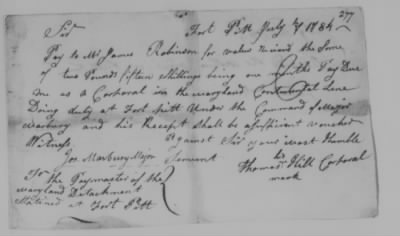 277
Fort Pitt July 1784
Sir
Pay to Mr James Robinson for value Recived the Some
of two Pounds fifteen Shillings being one months Pay Due
me as a Corporal in the maryland Continental Line
Doing duty at Fort Pitt Under the Command of Major
Marbury and his Receipt Shall be a Sufficient voucher
Witness against Sir your most Humble
Jos. Marbury Major Servant
his
Thomas Hill Corporal
mark
To
the Paymaster of the
Maryland Detachment
Stationed at Fort Pitt